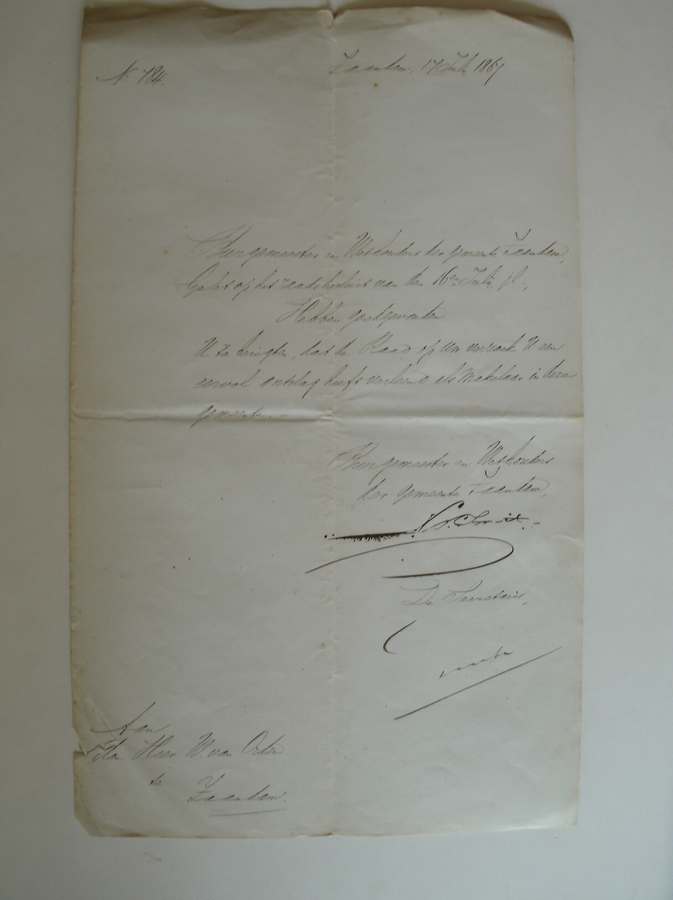 N. 724.
Zaandam, 17 Juli 1867
Burgemeester en Wethouders der gemeente Zaandam,
Gelet op het raadsbesluit van den 16 Juli jl.,
Hebben goedgevonden
U te berigten, dat de Raad op Uw verzoek U een
eervol ontslag heeft verleend als Makelaar in deze
gemeente.
Burgemeester en Wethouders
der gemeente Zaandam,
De Secretaris,
Aan
den Heer W van Orden
te
Zaandam.